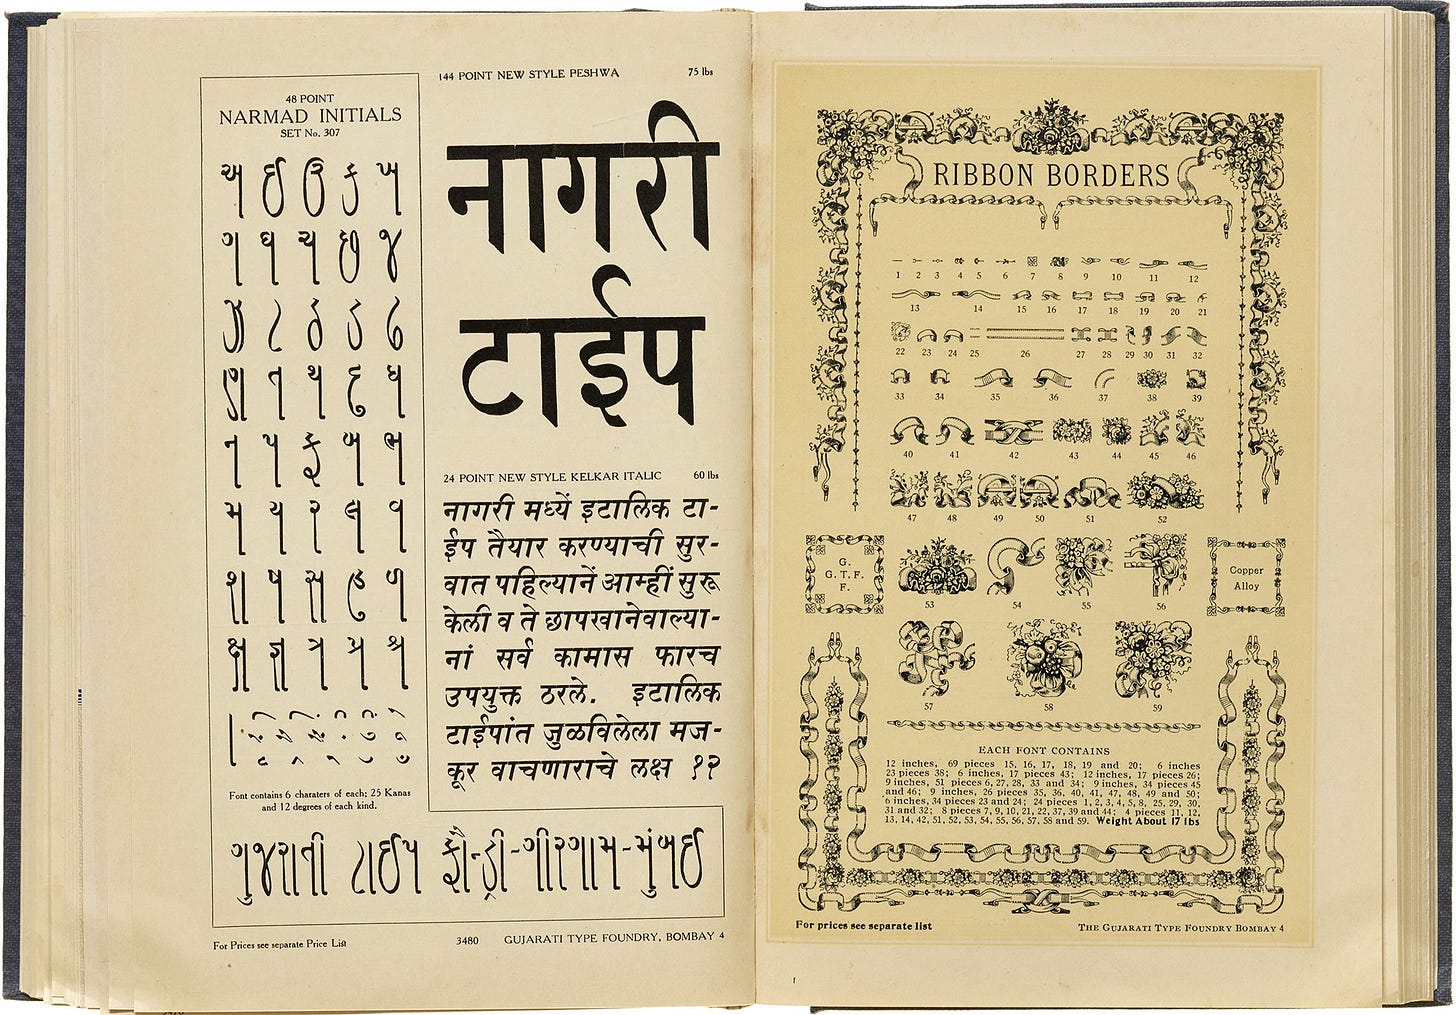 48 POINT
NARMAD INITIALS
SET No. 307
અ ઈ ઉ ક ખ
ગ ઘ ચ છ જ
ઝ ટ ઠ ડ ઢ
ણ ત થ દ ધ
ન પ ફ બ ભ
મ ય ર લ વ
શ ષ સ હ ળ
ક્ષ જ્ઞ ત્ર પ્ર શ્ર
Font contains 6 charaters of each; 25 Kanas
and 12 degrees of each kind.
144 POINT NEW STYLE PESHWA 75 lbs
नागरी
टाईप
24 POINT NEW STYLE KELKAR ITALIC 60 lbs
नागरी मध्यें इटालिक टा-
ईप तैयार करण्याची सुर-
वात पहिल्यानें आम्हीं सुरू
केली व ते छापखानेवाल्या-
नां सर्व कामास फारच
उपयुक्त ठरले. इटालिक
टाईपांत जुळविलेला मज-
कूर वाचणाराचे लक्ष १२
ગુજરાતી ટાઈપ ફૌન્ડ્રી-ગીરગામ-મુંબઈ
For Prices see separate Price List
3480 GUJARATI TYPE FOUNDRY, BOMBAY 4
RIBBON BORDERS
1 2 3 4 5 6 7 8 9 10 11 12
13 14 15 16 17 18 19 20 21
22 23 24 25 26 27 28 29 30 31 32
33 34 35 36 37 38 39
40 41 42 43 44 45 46
47 48 49 50 51 52
G.
G. T. F.
F.
Copper
Alloy
53 54 55 56
57 58 59
EACH FONT CONTAINS
12 inches, 69 pieces 15, 16, 17, 18, 19 and 20; 6 inches
23 pieces 38; 6 inches, 17 pieces 43; 12 inches, 17 pieces 26;
9 inches, 51 pieces 6, 27, 28, 33 and 34; 9 inches, 34 pieces 45
and 46; 9 inches, 26 pieces 35, 36, 40, 41, 47, 48, 49 and 50;
6 inches, 34 pieces 23 and 24; 24 pieces 1, 2, 3, 4, 5, 8, 25, 29, 30,
31 and 32; 8 pieces 7, 9, 10, 21, 22, 37, 39 and 44; 4 pieces 11, 12,
13, 14, 42, 51, 52, 53, 54, 55, 56, 57, 58 and 59. Weight About 17 lbs
For prices see separate list
THE GUJARATI TYPE FOUNDRY BOMBAY 4